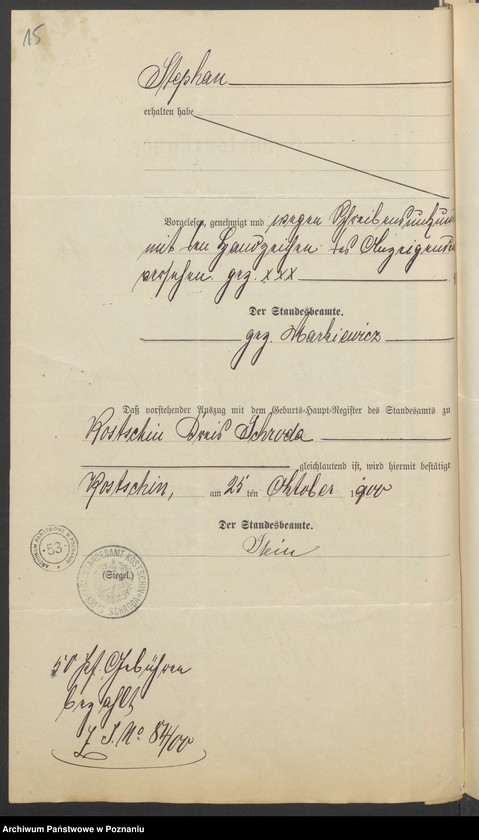 15
Stephan
erhalten habe
Vorgelesen, genehmigt und wegen Schreibensunkun
mit den Handzeichen des Anzeigenden
versehen. gez. xxx
Der Standesbeamte.
gez. Markiewicz
Daß vorstehender Auszug mit dem Geburts-Haupt-Register des Standesamts zu
Kostschin Kreis Schroda
gleichlautend ist, wird hiermit bestätigt
Kostschin, am 25 ten Oktober 1900
Der Standesbeamte.
Stein
ARCHIWUM PAŃSTWOWE W POZNANIU
53
STANDESAMT KOSTSCHIN
SCHRODA
(Siegel.)
50 Pf. Gebühren
bezahlt
J. No 84/00
Archiwum Państwowe w Poznaniu